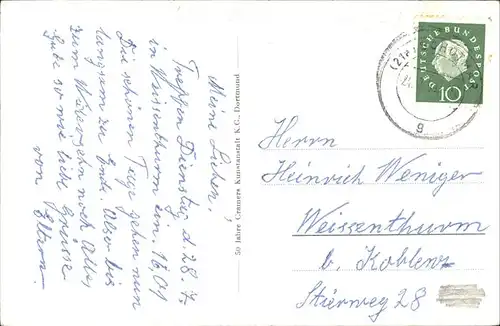 Meine Lieben,
Treffen Dienstag d. 28.7.
in Weissenthurm ein. 16,01
Die schönen Tage gehen nun
langsam zu Ende. Also bis
zum Wiedersehn noch Alles
Gute so wie liebe Grüsse
von Eltern.
50 Jahre Cramers Kunstanstalt K.G., Dortmund
DEUTSCHE BUNDESPOST
10
(21a)
g
Herrn
Heinrich Weniger
Weissenthurm
b. Koblenz
Stierweg 28